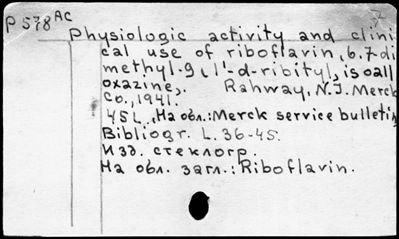 P 578 AC
7
Physiologic activity and clini
cal use of riboflavin, 6.7-di
methyl-9, (1'-d-ribityl), isoall
oxazine,. Rahway, N.J. Merck
Co., 1941.
45L. На обл.: Merck service bulletin
Bibliogr. L. 36-45.
Изд. стеклогр.
На обл. загл.: Riboflavin.